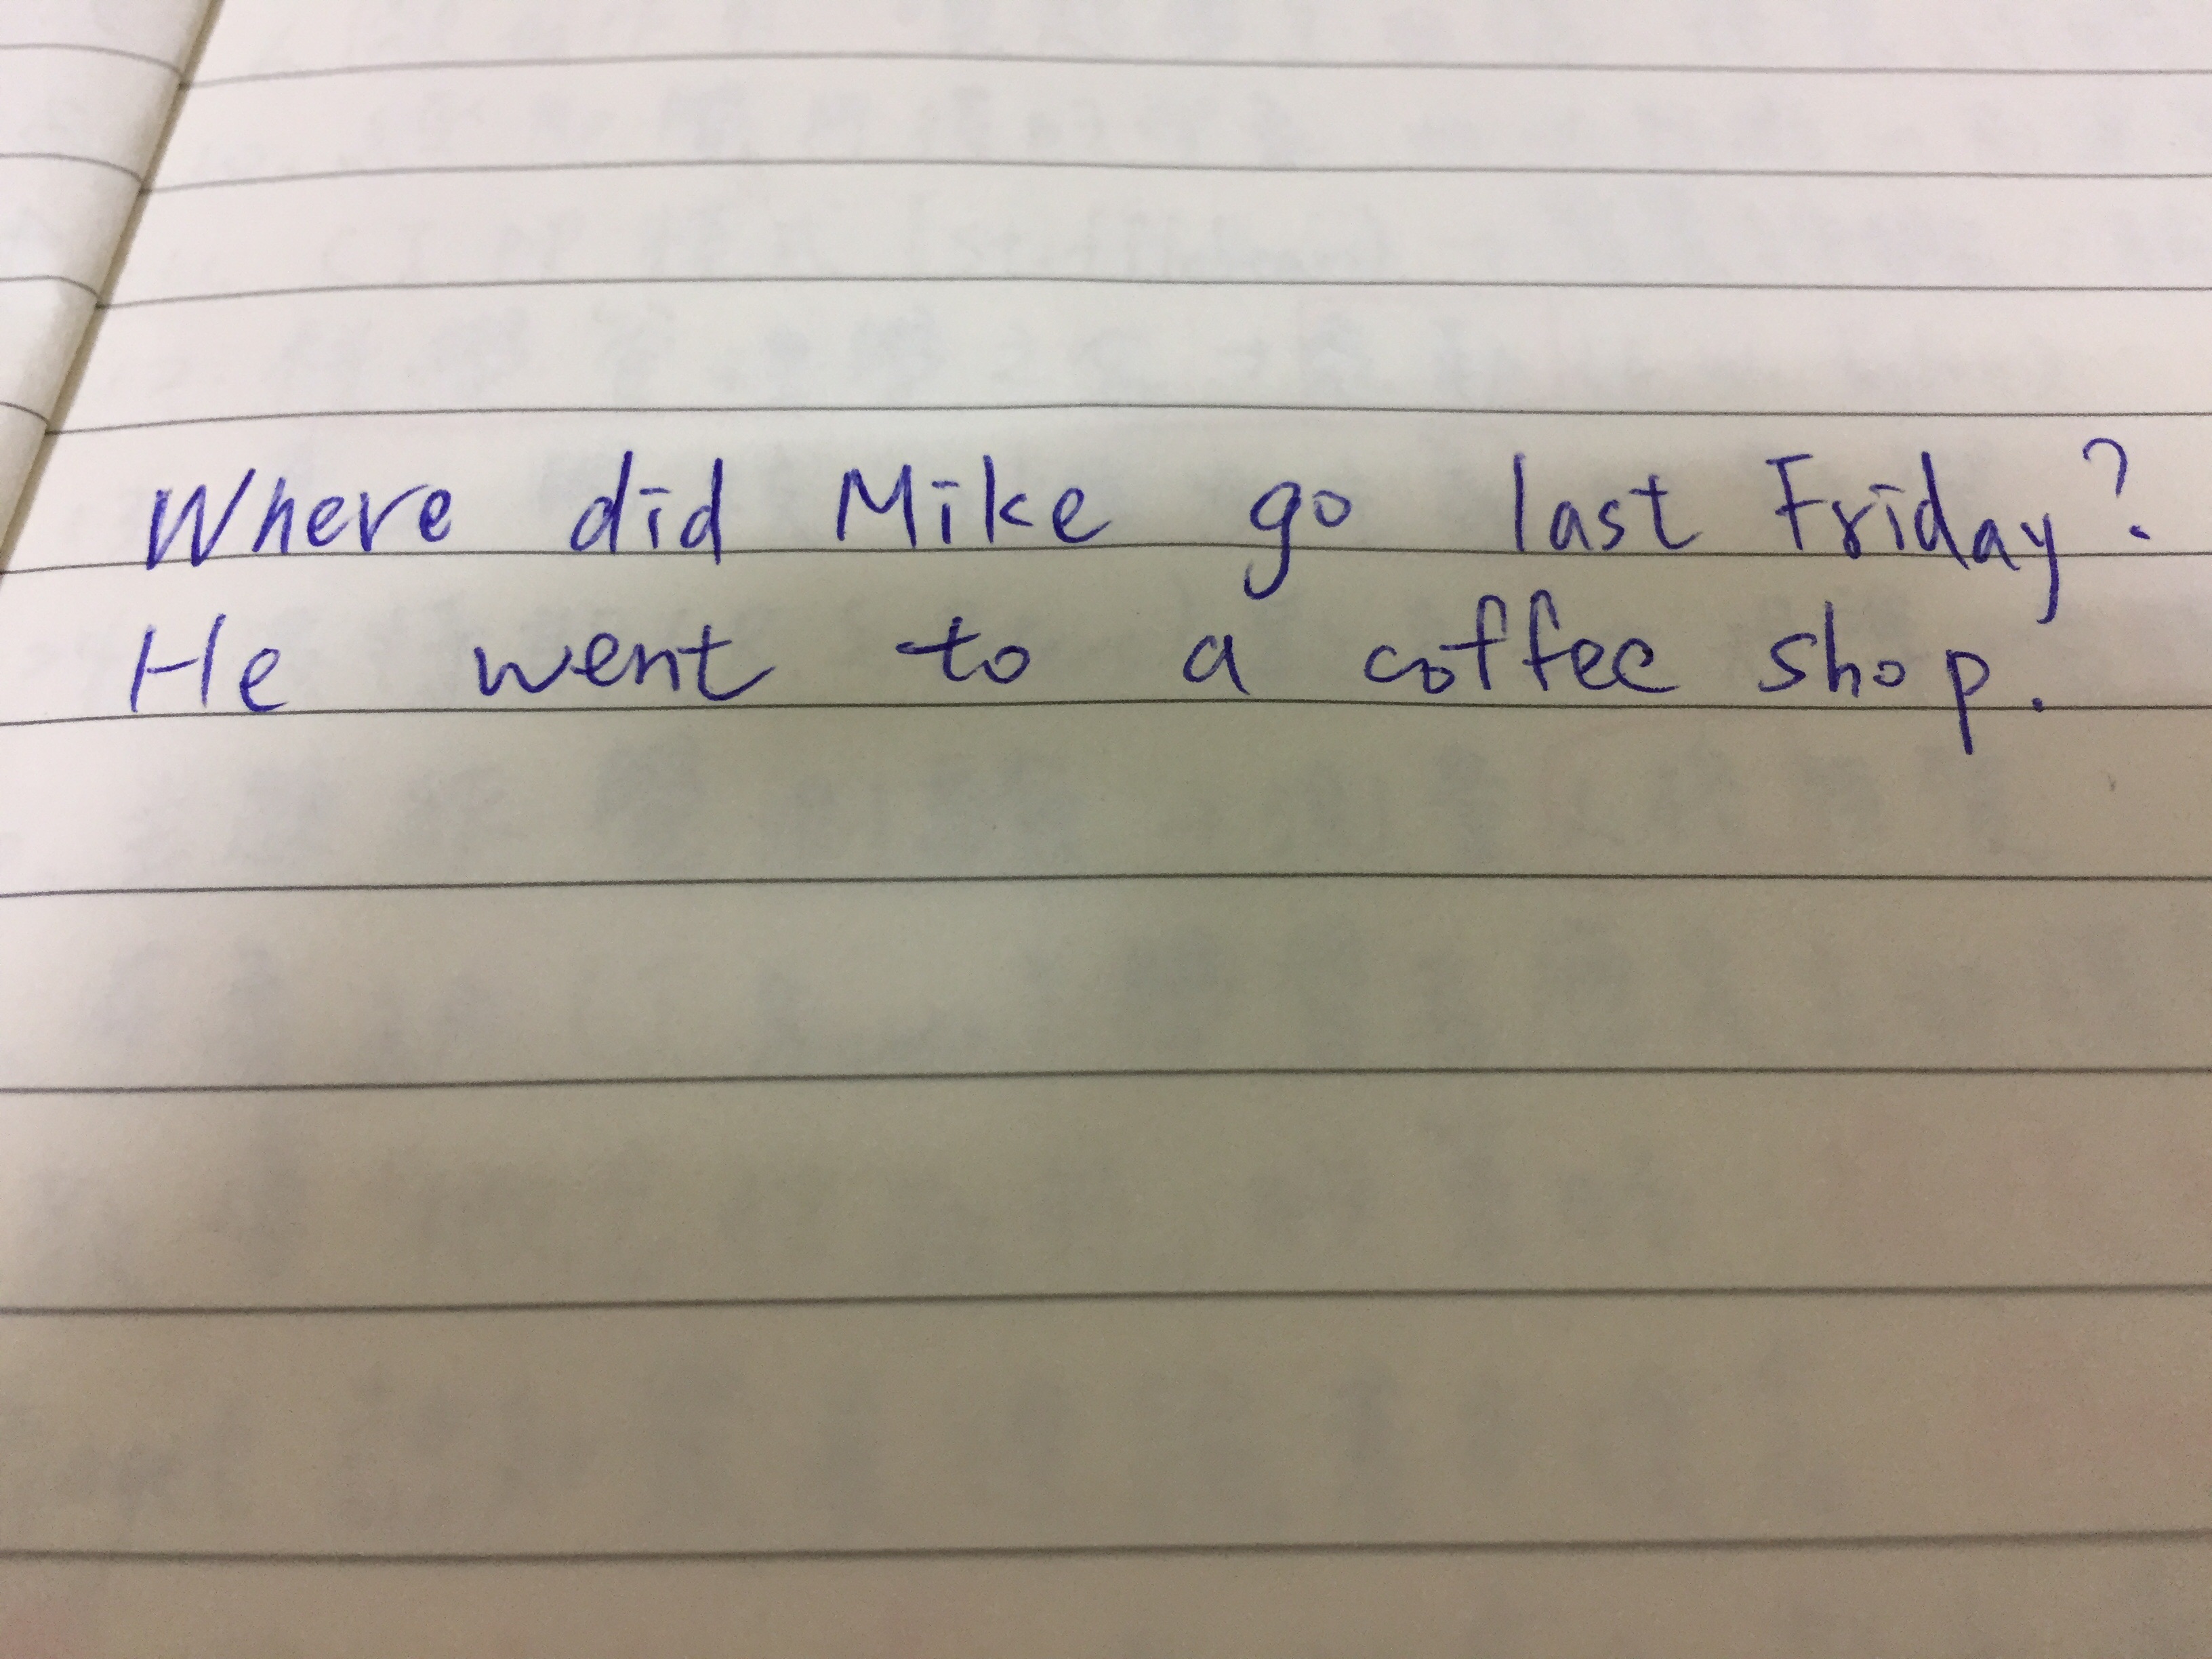 Where did Mike go last Friday?
He went to a coffee shop.